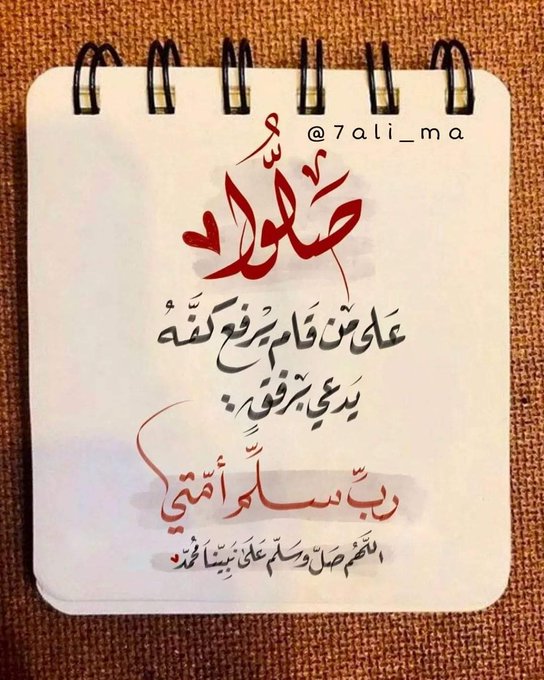 @7ali_ma
صَلُّوا
عَلى مَن قَام يَرفع كفَّهُ
يَدعي برفقٍ:
ربِّ سلِّم أمّتي
اللَّهُم صَلّ وسَلّم عَلىٰ نَبِيّنَا مُحمّد